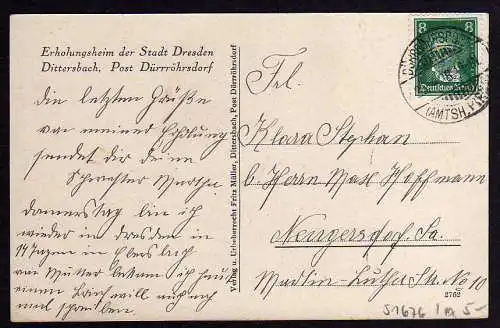 Erholungsheim der Stadt Dresden
Dittersbach, Post Dürrröhrsdorf
die letzten Grüße
vor meiner Erholung
sendet dir deine
Schwester Martha
donnerstag bin ich
wieder in dresden in
14 Tagen in Ebersbach
von Mutter bekam ich heut
einen Brief will auch noch
mal
Verlag u. Urheberrecht Fritz Müller, Dittersbach, Post Dürrröhrsdorf
8 8
Deutsches Reich
(AMTSH.
Frl.
Klara Stephan
b. Herrn Max Hoffmann
Neugersdorf. Sa.
Martin-Luther Str. No 10
2762
S1676 5-